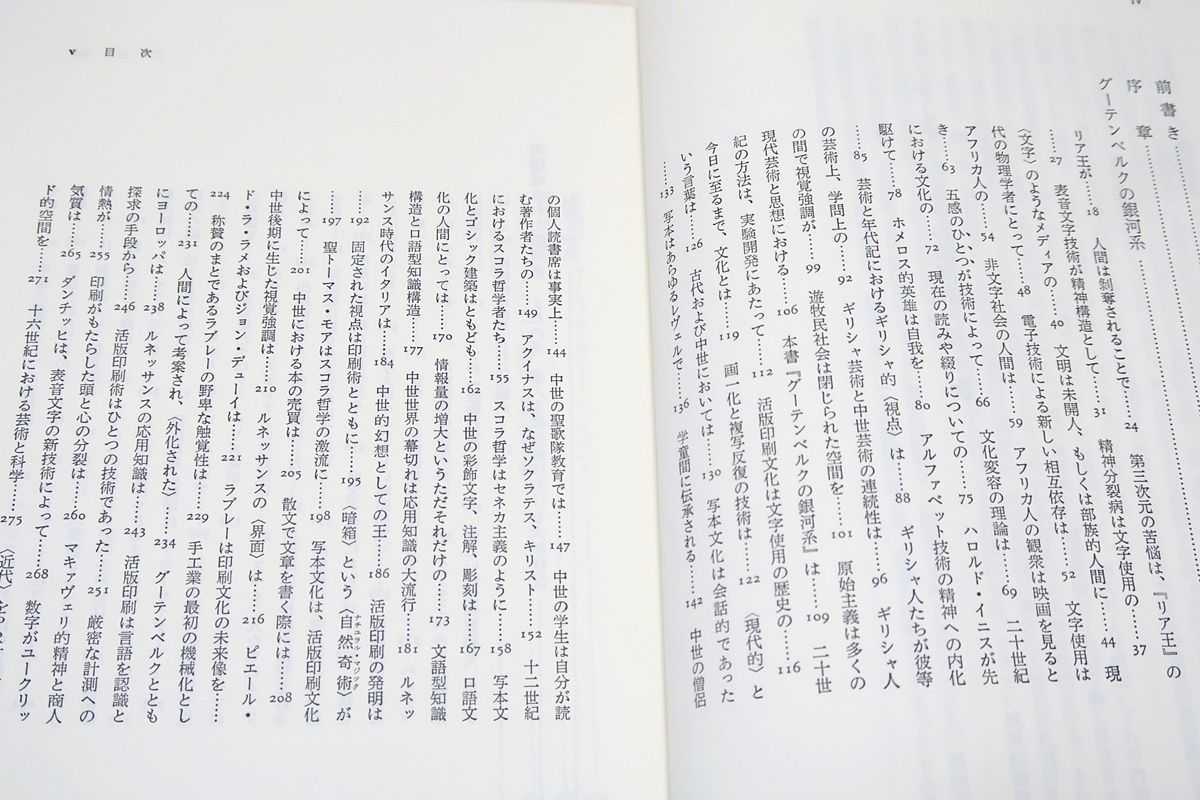 iv
前書き……
序章……
グーテンベルクの銀河系……
リア王が……18 人間は剝奪されることで……24 第三次元の苦悩は、『リア王』の
……27 表音文字技術が精神構造として……31 精神分裂病は文字使用の……37
〈文字〉のようなメディアの……40 文明は未開人、もしくは部族的人間に……44 現
代の物理学者にとって……48 電子技術による新しい相互依存は……52 文字使用は
アフリカ人の……54 非文字社会の人間は……59 アフリカ人の観衆は映画を見ると
き……63 五感のひとつが技術によって……66 文化変容の理論は……69 二十世紀
における文化の……72 現在の読みや綴りについての……75 ハロルド・イニスが先
駆けて……78 ホメロス的英雄は自我を……80 アルファベット技術の精神への内化
……85 芸術と年代記におけるギリシャ的〈視点〉は……88 ギリシャ人たちが彼等
の芸術上、学問上の……92 ギリシャ芸術と中世芸術の連続性は……96 ギリシャ人
の間で視覚強調が……99 遊牧民社会は閉じられた空間を……101 原始主義は多くの
現代芸術と思想における……106 本書『グーテンベルクの銀河系』は……109 二十世
紀の方法は、実験開発にあたって……112 活版印刷文化は文字使用の歴史の……116
今日に至るまで、文化とは……119 画一化と複写反復の技術は……122 〈現代的〉と
いう言葉は……126 古代および中世においては……130 写本文化は会話的であった
……133 写本はあらゆるレヴェルで……136 学童間に伝承される……142 中世の僧侶
次 目 v
の個人読書席は事実上……144 中世の聖歌隊教育では……147 中世の学生は自分が読
む著作者たちの……149 アクイナスは、なぜソクラテス、キリスト……152 十二世紀
におけるスコラ哲学者たち……155 スコラ哲学はセネカ主義のように……158 写本文
化とゴシック建築はともども……162 中世の彩飾文字、注解、彫刻は……167 口語文
化の人間にとっては……170 情報量の増大というただそれだけの……173 文語型知識
構造と口語型知識構造……177 中世世界の幕切れは応用知識の大流行……181 ルネッ
サンス時代のイタリアは……184 中世的幻想としての王……186 活版印刷の発明は
……192 固定された視点は印刷術とともに……195 〈暗箱〉という〈自然奇術〉が
……197 聖トーマス・モアはスコラ哲学の激流に……198 写本文化は、活版印刷文化
によって……201 中世における本の売買は……205 散文で文章を書く際には……208
中世後期に生じた視覚強調は……210 ルネッサンスの〈界面〉は……216 ピエール・
ド・ラ・ラメおよびジョン・デューイは……221 ラブレーは印刷文化の未来像を……
224 称賛のまとであるラブレーの野卑な触覚性は……229 手工業の最初の機械化とし
ての……231 人間によって考案され、〈外化された〉……234 グーテンベルクととも
にヨーロッパは……238 ルネッサンスの応用知識は……243 活版印刷は言語を認識と
探求の手段から……246 活版印刷術はひとつの技術であった……251 厳密な計測への
情熱が……255 印刷がもたらした頭と心の分裂は……260 マキァヴェリ的精神と商人
気質は……265 ダンチッヒは、表音文字の新技術によって……268 数字がユークリッ
ド的空間を……271 十六世紀における芸術と科学……275 〈近代〉を